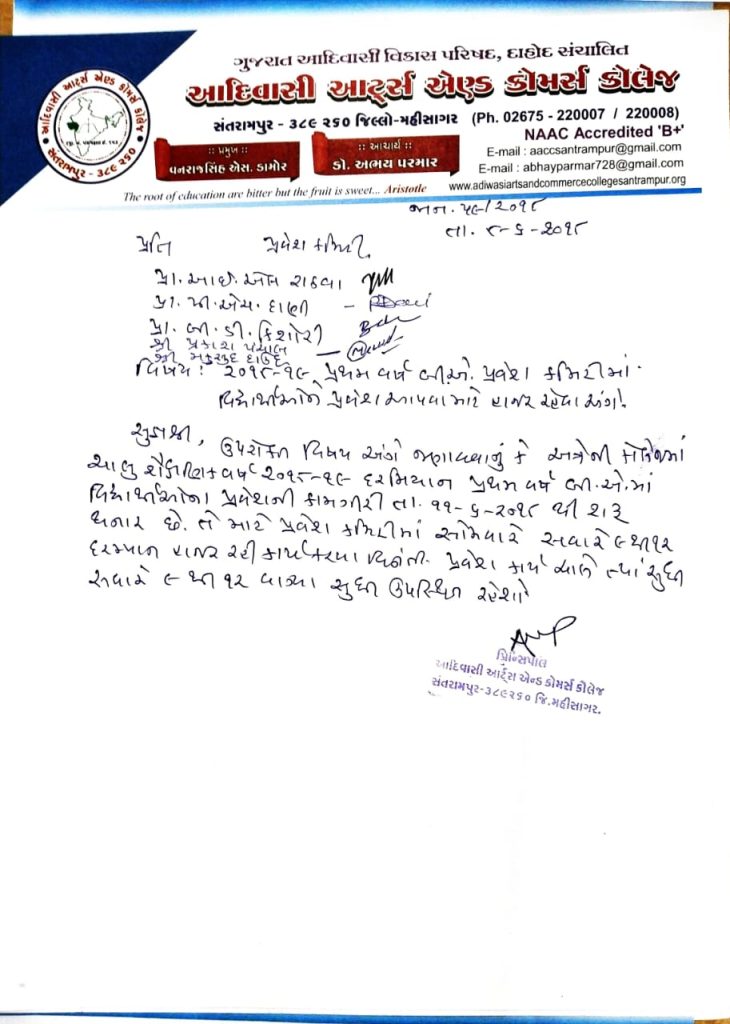 ગુજરાત આદિવાસી વિકાસ પરિષદ, દાહોદ સંચાલિત
આદિવાસી આર્ટ્સ એણ્ડ કોમર્સ કોલેજ
સંતરામપુર - ૩૮૯ ૨૬૦ જિલ્લો-મહીસાગર (Ph. 02675 - 220007 / 220008)
NAAC Accredited 'B+'
:: પ્રમુખ ::
વનરાજસિંહ એસ. ડામોર
:: આચાર્ય ::
ડૉ. અભય પરમાર
E-mail : aaccsantrampur@gmail.com
E-mail : abhayparmar728@gmail.com
The root of education are bitter but the fruit is sweet... Aristotle
www.adiwasiartsandcommercecollegesantrampur.org
આદિવાસી આર્ટ્સ એણ્ડ કોમર્સ કોલેજ
સંતરામપુર - ૩૮૯ ૨૬૦
જાન. ૫૯/૨૦૧૮
તા. ૮-૬-૨૦૧૮
પ્રતિ પ્રવેશ કમિટી,
પ્રા. આઈ. એલ રાઠવા
પ્રા. પી. એસ. દાણી
પ્રા. બી. ડી. કિશોરી
શ્રી પ્રકાશ પંચાલ
શ્રી મકસુદ દાઉદ
વિષય : ૨૦૧૮-૧૯, પ્રથમ વર્ષ બીએ. પ્રવેશ કમિટીમાં
વિદ્યાર્થીઓને પ્રવેશ આપવા માટે હાજર રહેવા અંગે.
સુજ્ઞશ્રી, ઉપરોક્ત વિષય અંગે જણાવવાનું કે અત્રેની કોલેજમાં
ચાલુ શૈક્ષણિક વર્ષ ૨૦૧૮-૧૯ દરમિયાન પ્રથમ વર્ષ બી.એ.માં
વિદ્યાર્થીઓના પ્રવેશની કામગીરી તા. ૧૧-૬-૨૦૧૮ થી શરૂ
થનાર છે. તે માટે પ્રવેશ કમિટીમાં સોમવારે સવારે ૯ થી ૧૨
દરમ્યાન હાજર રહી કાર્ય કરવા વિનંતી. પ્રવેશ કાર્ય ચાલે ત્યાં સુધી
સવારે ૯ થી ૧૨ વાગ્યા સુધી ઉપસ્થિત રહેશો
પ્રિન્સિપાલ
આદિવાસી આર્ટ્સ એન્ડ કોમર્સ કોલેજ
સંતરામપુર-૩૮૯૨૬૦ જિ.મહીસાગર.